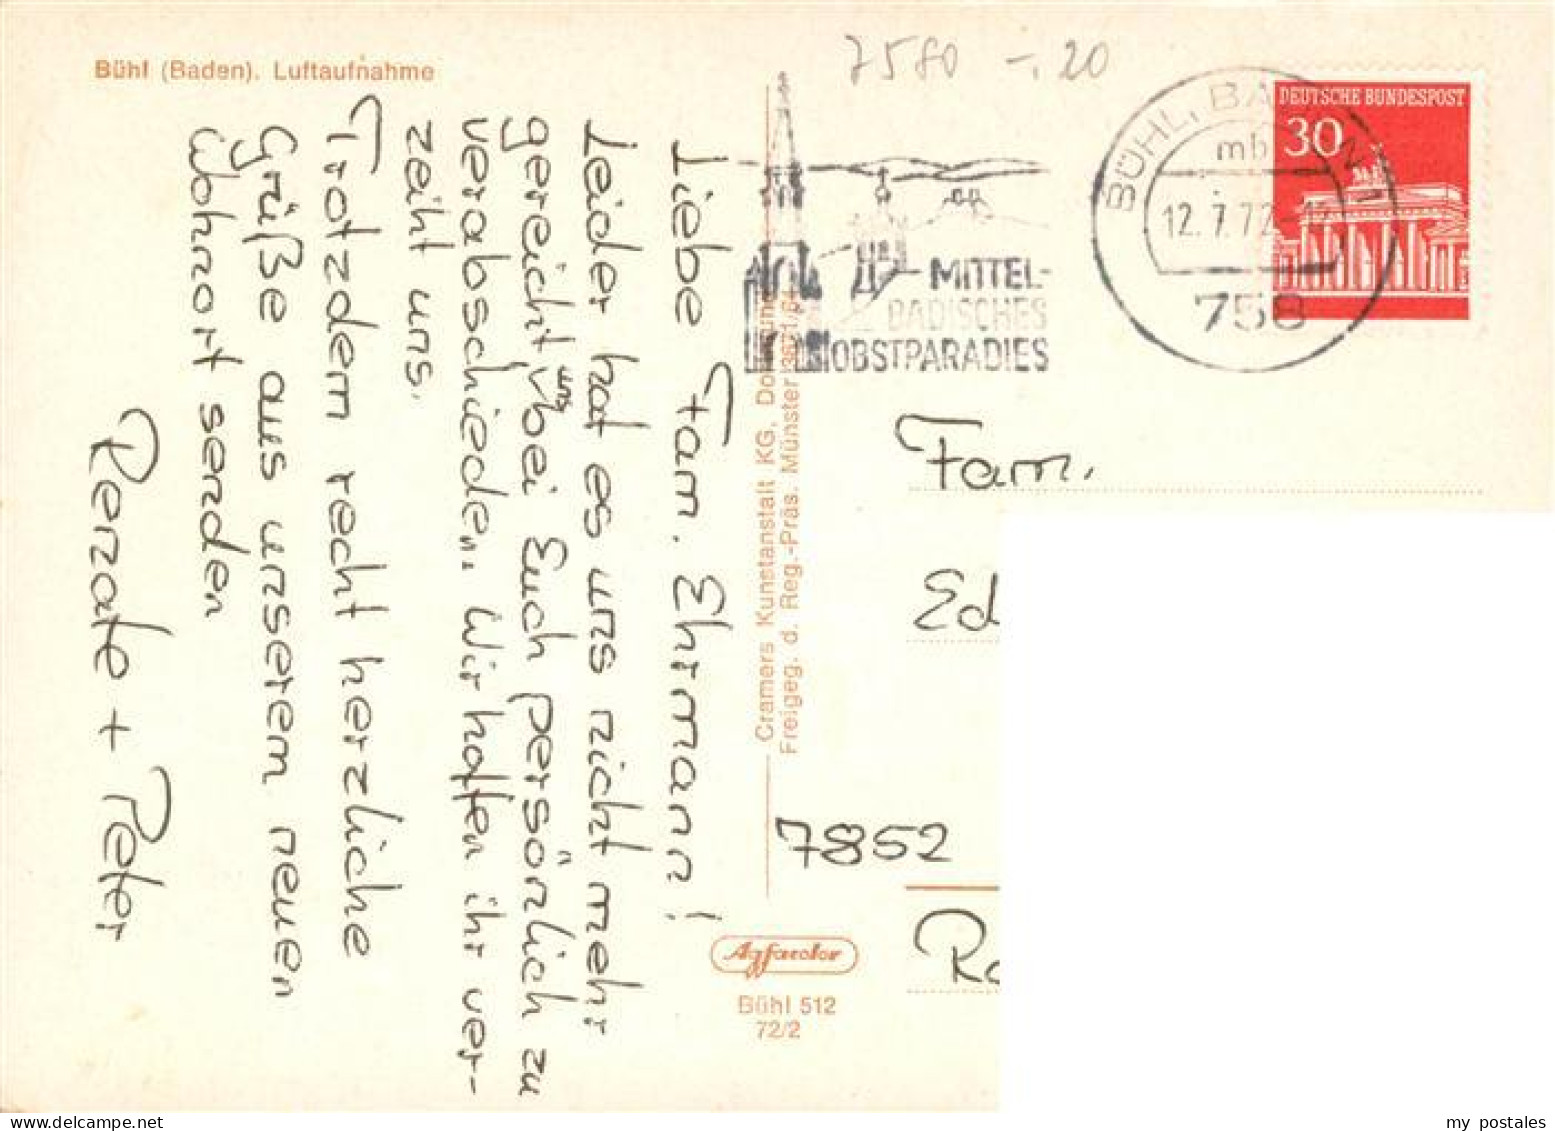 Bühl (Baden). Luftaufnahme
7580 -.20
DEUTSCHE BUNDESPOST
30
BÜHL, BA N 1
mb
12.7.72
758
MITTEL-
BADISCHES
OBSTPARADIES
Liebe Fam. Ehrmann!
Leider hat es uns nicht mehr
gereicht uns bei Euch persönlich zu
verabschieden. Wir hoffen ihr ver-
zeiht uns.
Trotzdem recht herzliche
Grüße aus unserem neuen
Wohnort senden
Renate + Peter
Cramers Kunstanstalt KG, Dortmund
Freigeg. d. Reg.-Präs. Münster
Fam.
Ed
7852
Ro
Agfacolor
Bühl 512
72/2
my postales